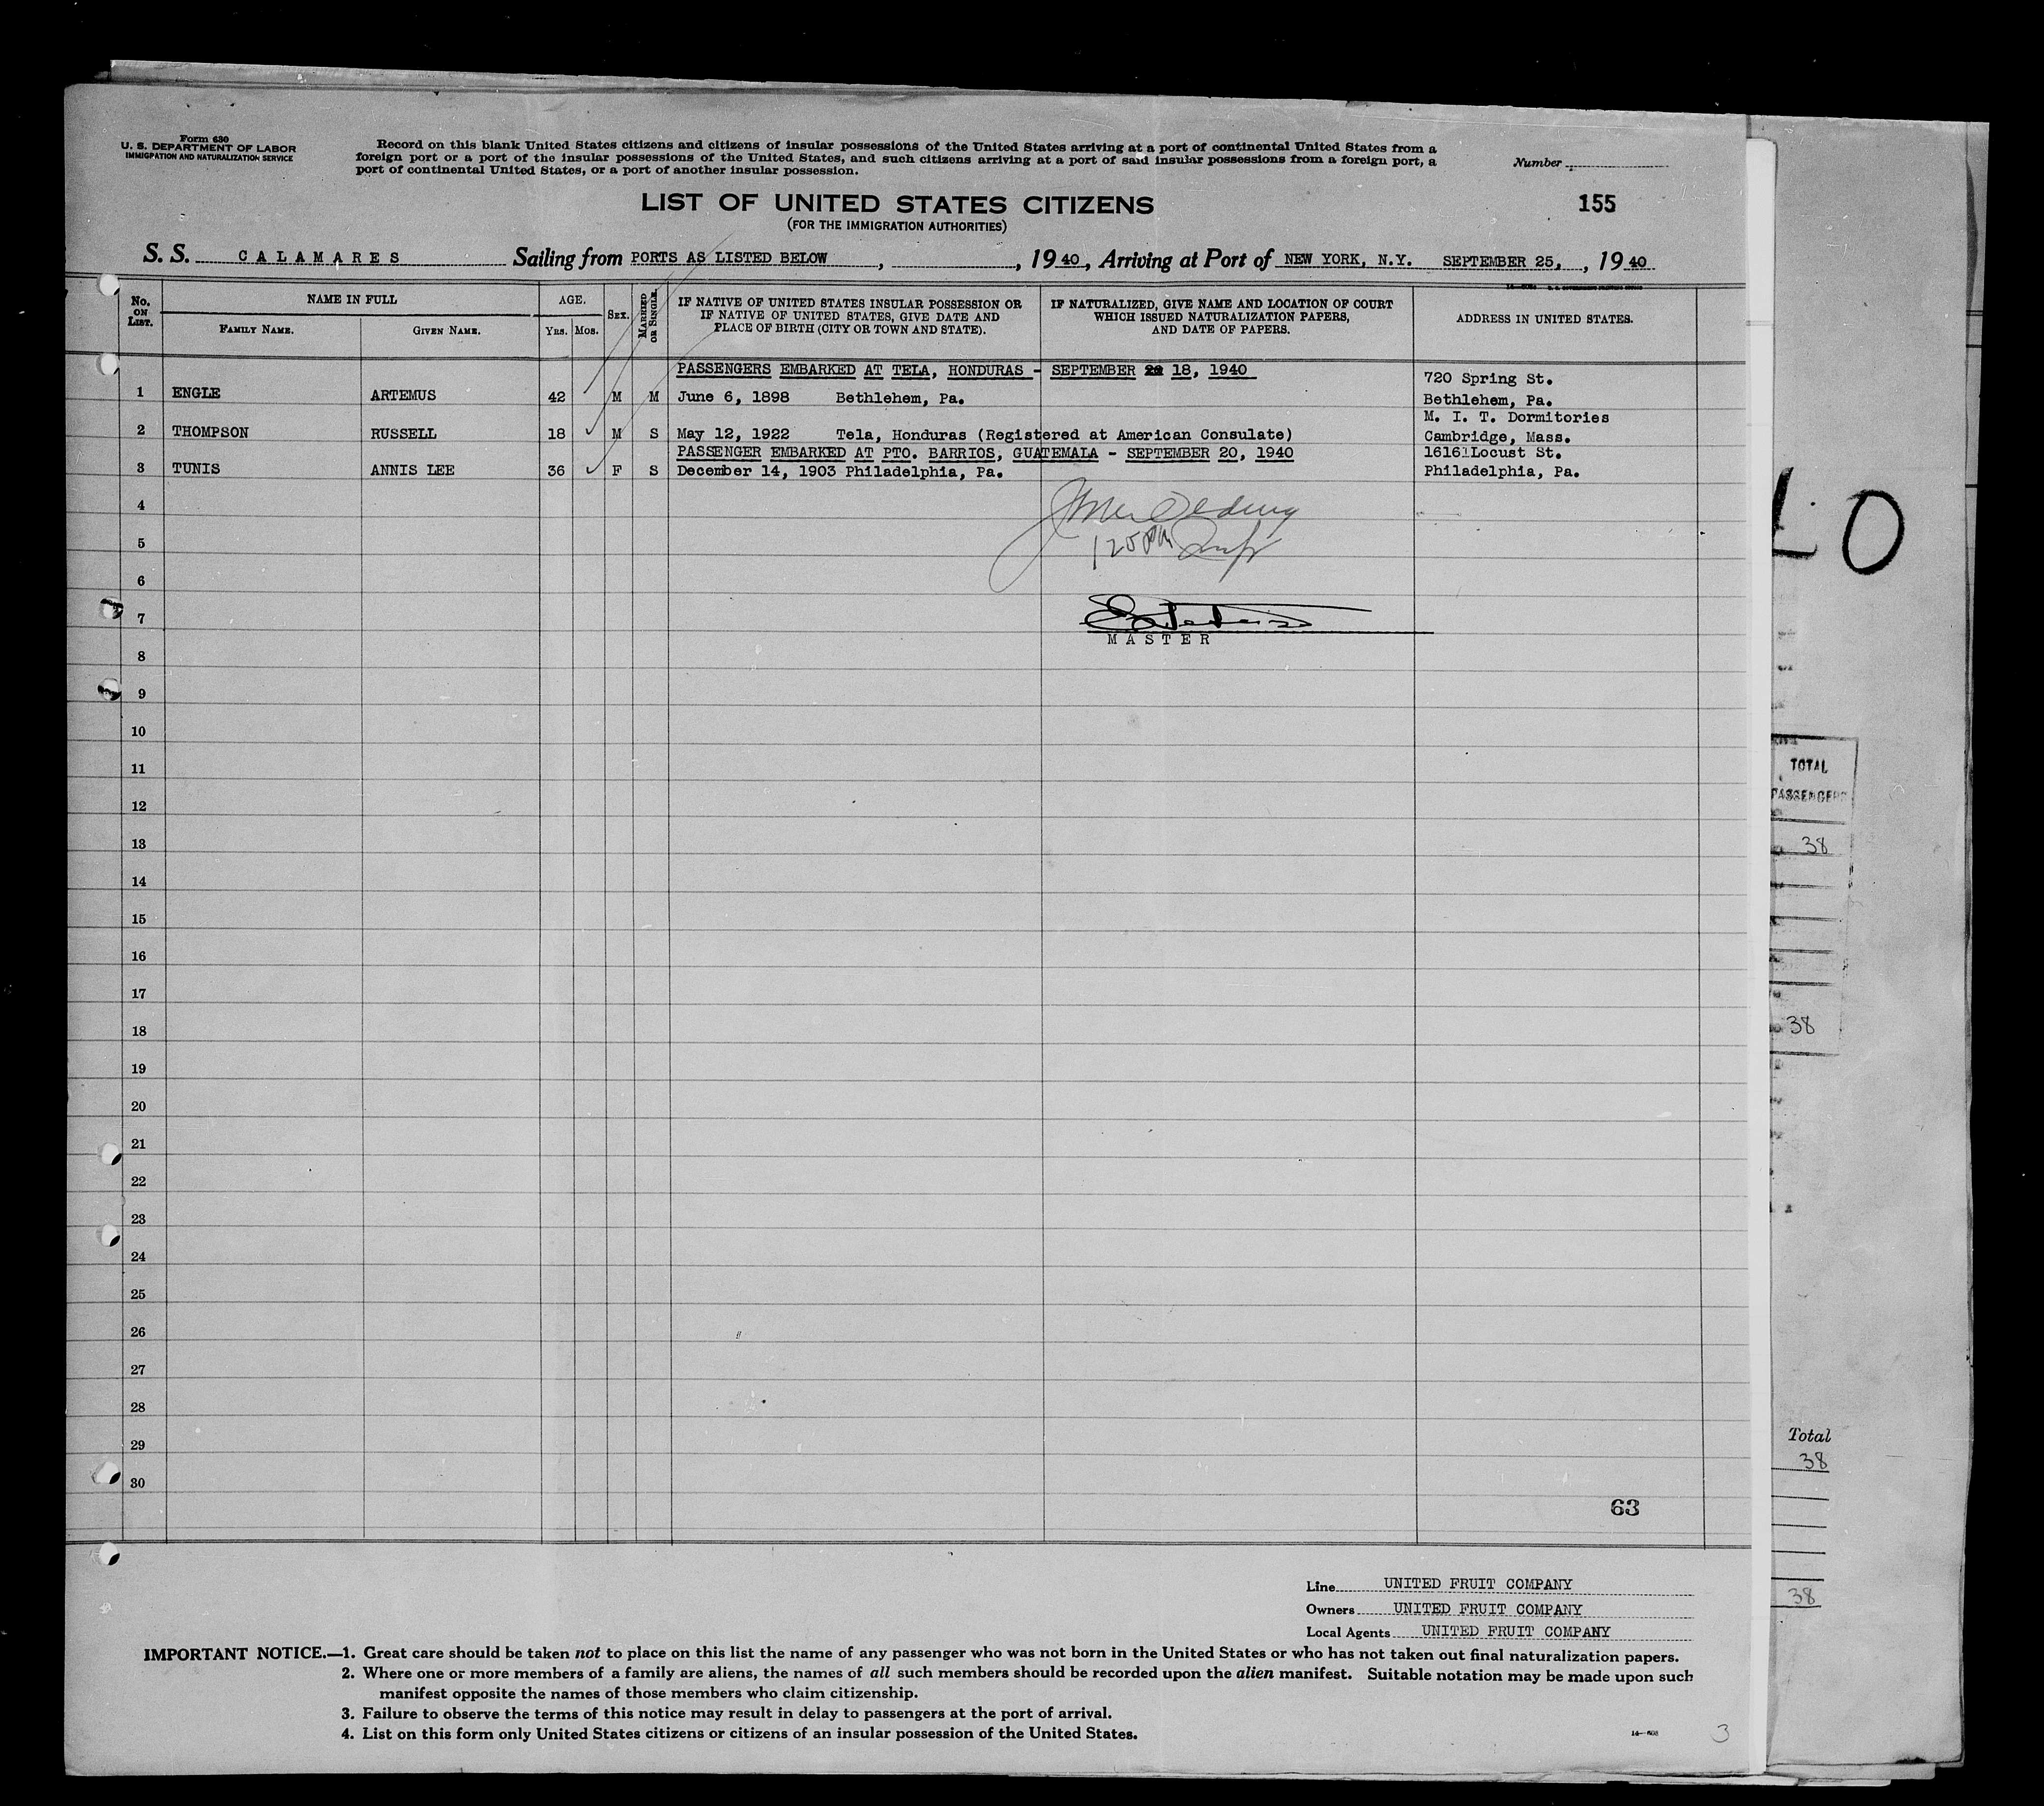 Form 630
U. S. DEPARTMENT OF LABOR
IMMIGRATION AND NATURALIZATION SERVICE
Record on this blank United States citizens and citizens of insular possessions of the United States arriving at a port of continental United States from a
foreign port or a port of the insular possessions of the United States, and such citizens arriving at a port of said insular possessions from a foreign port, a
port of continental United States, or a port of another insular possession.
Number
LIST OF UNITED STATES CITIZENS
(FOR THE IMMIGRATION AUTHORITIES)
155
S. S. CALAMARES Sailing from PORTS AS LISTED BELOW, , 1940, Arriving at Port of NEW YORK, N.Y. SEPTEMBER 25, , 1940
No. ON LIST. NAME IN FULL FAMILY NAME. GIVEN NAME. AGE. YRS. MOS. SEX. MARRIED OR SINGLE. IF NATIVE OF UNITED STATES INSULAR POSSESSION OR IF NATIVE OF UNITED STATES, GIVE DATE AND PLACE OF BIRTH (CITY OR TOWN AND STATE). IF NATURALIZED, GIVE NAME AND LOCATION OF COURT WHICH ISSUED NATURALIZATION PAPERS, AND DATE OF PAPERS. ADDRESS IN UNITED STATES.
PASSENGERS EMBARKED AT TELA, HONDURAS - SEPTEMBER 18, 1940
720 Spring St.
1 ENGLE ARTEMUS 42 M M June 6, 1898 Bethlehem, Pa. Bethlehem, Pa.
M. I. T. Dormitories
2 THOMPSON RUSSELL 18 M S May 12, 1922 Tela, Honduras (Registered at American Consulate) Cambridge, Mass.
PASSENGER EMBARKED AT PTO. BARRIOS, GUATEMALA - SEPTEMBER 20, 1940 1616 Locust St.
3 TUNIS ANNIS LEE 36 F S December 14, 1903 Philadelphia, Pa. Philadelphia, Pa.
4
5
6
7
MASTER
8
9
10
11
12
13
14
15
16
17
18
19
20
21
22
23
24
25
26
27
28
29
30
63
Line UNITED FRUIT COMPANY
Owners UNITED FRUIT COMPANY
Local Agents UNITED FRUIT COMPANY
IMPORTANT NOTICE.—1. Great care should be taken not to place on this list the name of any passenger who was not born in the United States or who has not taken out final naturalization papers.
2. Where one or more members of a family are aliens, the names of all such members should be recorded upon the alien manifest. Suitable notation may be made upon such
manifest opposite the names of those members who claim citizenship.
3. Failure to observe the terms of this notice may result in delay to passengers at the port of arrival.
4. List on this form only United States citizens or citizens of an insular possession of the United States.
3
TOTAL
PASSENGERS
38
38
Total
38
38